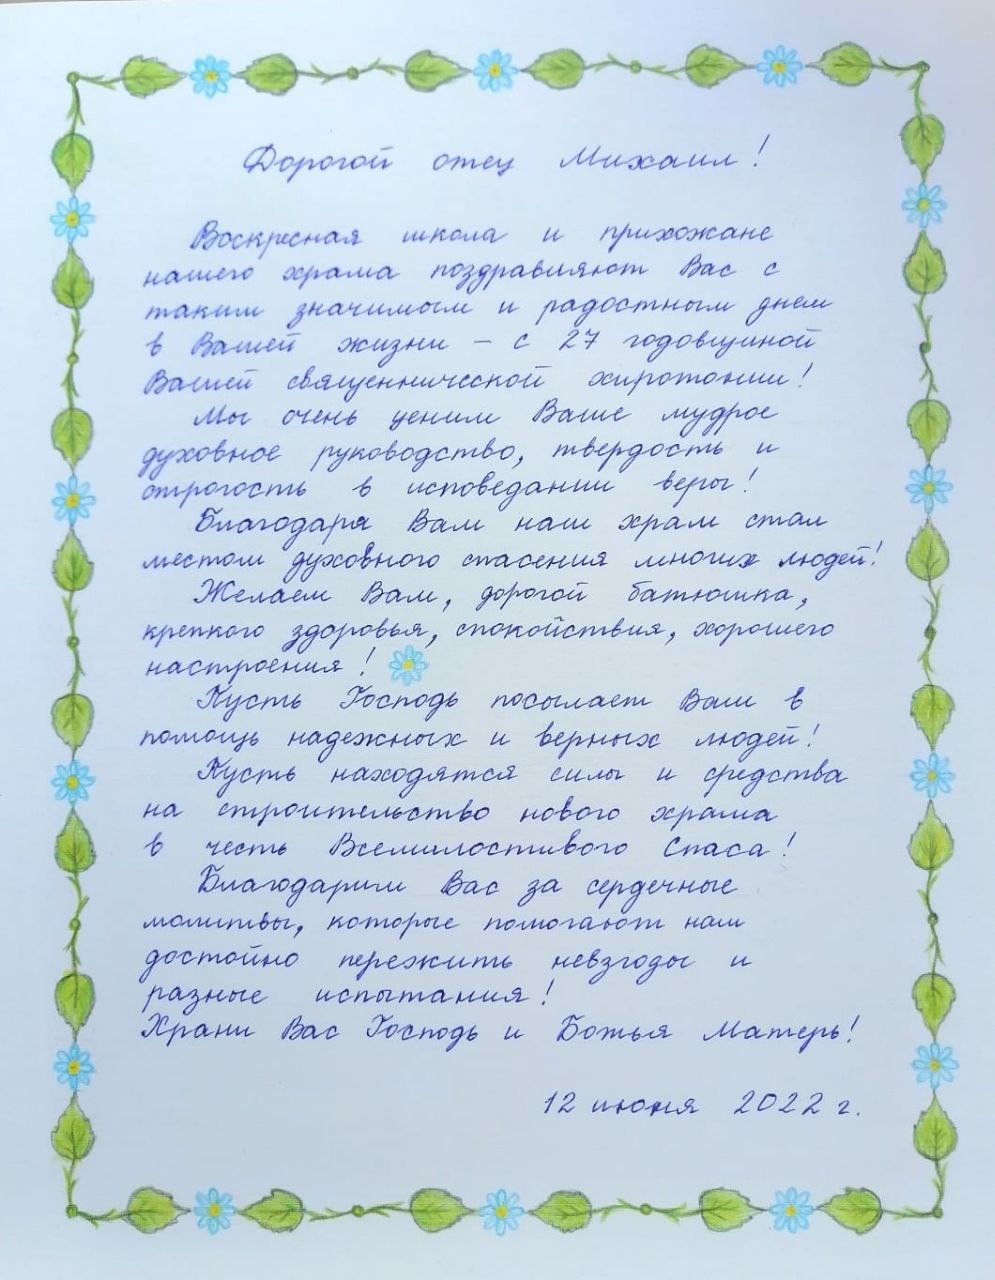 Дорогой отец Михаил!
Воскресная школа и прихожане
нашего храма поздравляют Вас с
таким значимым и радостным днем
в Вашей жизни – с 27 годовщиной
Вашей священнической хиротонии!
Мы очень ценим Ваше мудрое
духовное руководство, твердость и
строгость в исповедании веры!
Благодаря Вам наш храм стал
местом духовного спасения многих людей!
Желаем Вам, дорогой батюшка,
крепкого здоровья, спокойствия, хорошего
настроения!
Пусть Господь посылает Вам в
помощь надежных и верных людей!
Пусть находятся силы и средства
на строительство нового храма
в честь Всемилостивого Спаса!
Благодарим Вас за сердечные
молитвы, которые помогают нам
достойно пережить невзгоды и
разные испытания!
Храни Вас Господь и Божья Матерь!
12 июня 2022 г.